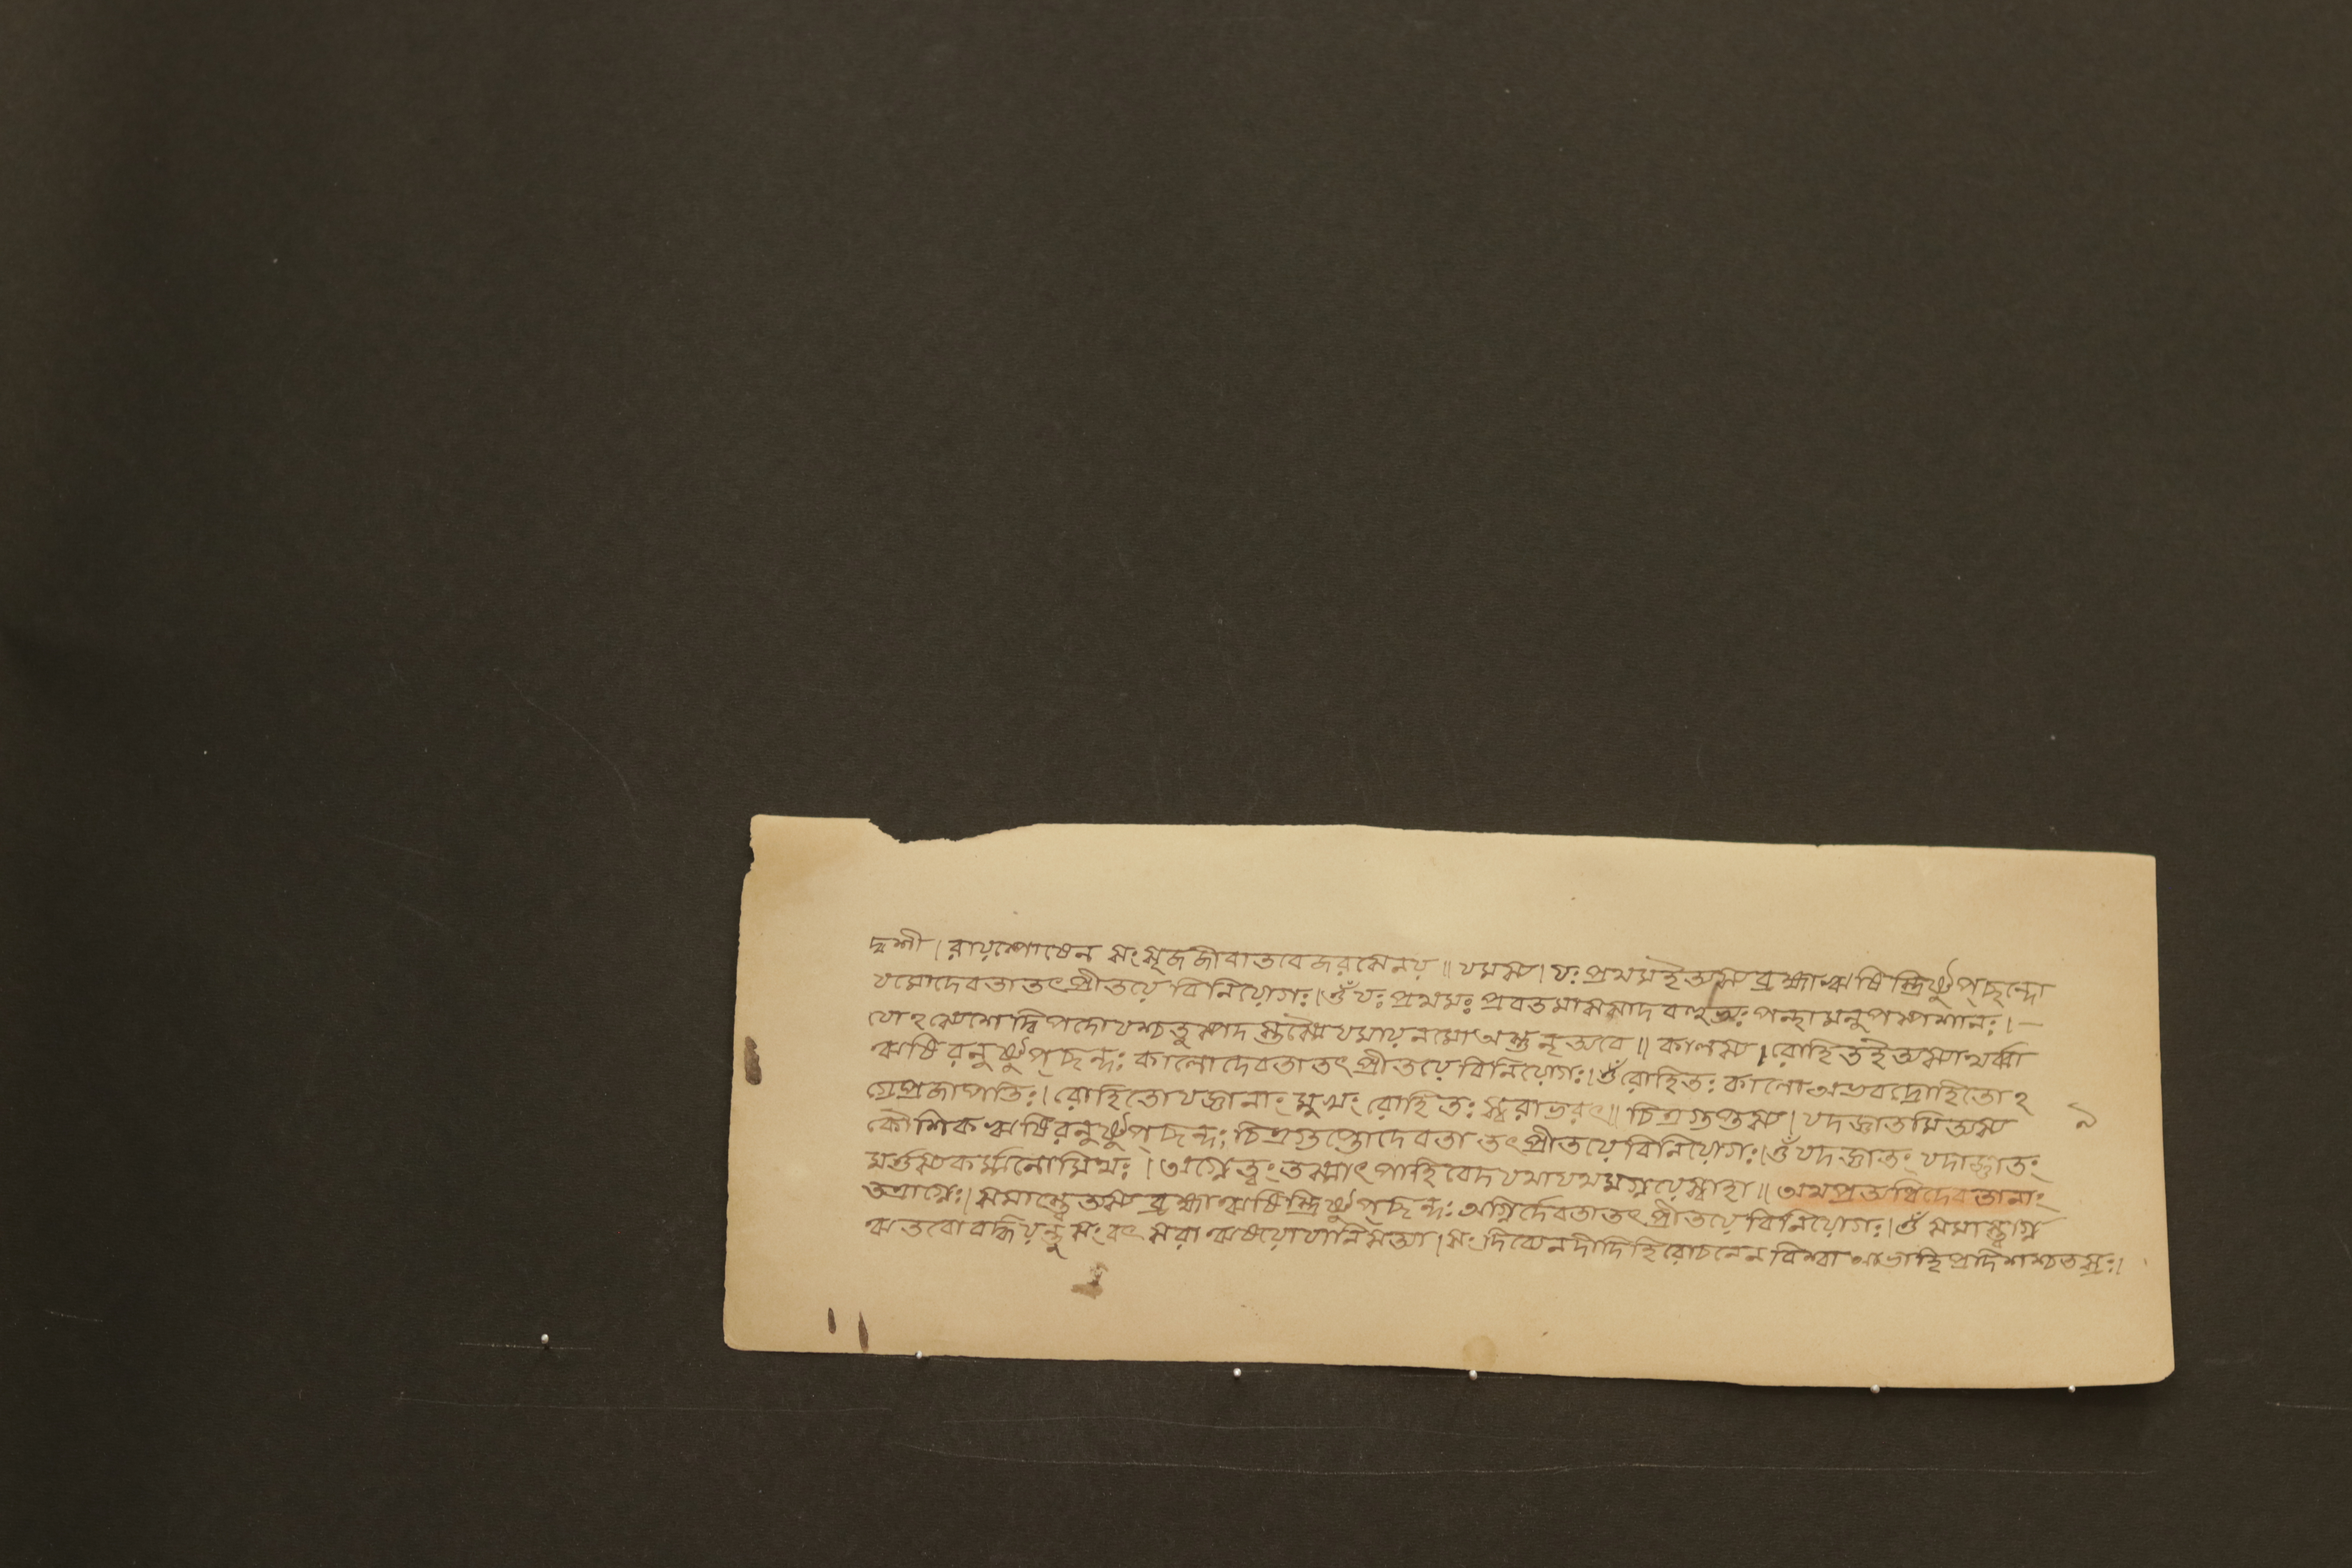 দ্বশী। রায়স্পোষেন সংসৃজজীবাতবেজরসেনয়॥ যমস্য। যঃ প্রথমইত্যস্য ব্রহ্মাঋষিস্ত্রিষ্টুপ্ছন্দো
যমোদেবতাতৎপ্রীতয়ে বিনিয়োগঃ। ওঁ যঃ প্রথমঃ প্রবতমাসসাদ বহুভ্যঃ পন্থামনুপস্পশানঃ।—
যোঽস্যেশে দ্বিপদোযশ্চতুষ্পদস্তস্মৈযমায়নমোঅস্তুমৃত্যবে॥ কালস্য। রোহিতইত্যস্যাথর্ব্বা
ঋষিরনুষ্টুপ্ছন্দঃ কালোদেবতাতৎপ্রীতয়ে বিনিয়োগঃ। ওঁ রোহিতঃ কালোঅভবদ্রোহিতোঽ
গ্রেপ্রজাপতিঃ। রোহিতোযজ্ঞানাং মুখং রোহিতঃ স্বরাভরৎ॥ চিত্রগুপ্তস্য। যদজ্ঞাতমিত্যস্য ৯
কৌশিকঋষিরনুষ্টুপ্ছন্দঃ চিত্রগুপ্তোদেবতা তৎপ্রীতয়ে বিনিয়োগঃ। ওঁ যদজ্ঞাতং যদাজ্ঞাতং
কর্ম্মনোমিথঃ। অগ্নেত্বং তস্মাৎ পাহিবেদযথাযথমগ্নয়েস্বাহা॥ অথপ্রত্যধিদেবতানাং
তত্রাগ্নেঃ। সমাস্ত্বেত্যস্য ব্রহ্মাঋষিস্ত্রিষ্টুপ্ছন্দঃ অগ্নির্দেবতাতৎপ্রীতয়ে বিনিয়োগঃ। ওঁ সমাস্ত্বাগ্ন
ঋতবোবর্দ্ধয়ন্তু সংবৎসরা ঋষয়োযানিসত্যা। সংদিব্যেনদীদিহিরোচনেন বিশ্বা আভাহিপ্রদিশশ্চতস্রঃ।